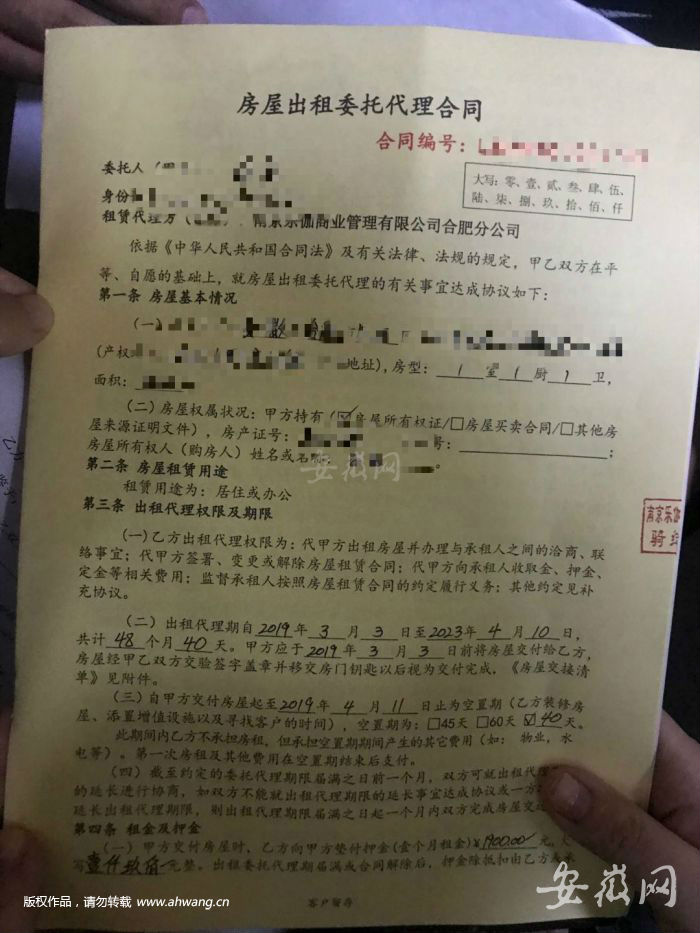 房屋出租委托代理合同
合同编号：
委托人（
大写：零、壹、贰、叁、肆、伍、
陆、柒、捌、玖、拾、佰、仟
身份
租赁代理方（ 南京乐伽商业管理有限公司合肥分公司
依据《中华人民共和国合同法》及有关法律、法规的规定，甲乙双方在平
等、自愿的基础上，就房屋出租委托代理的有关事宜达成协议如下：
第一条 房屋基本情况
（一）
（产权 地址），房型： 1 室 1 厨 1 卫，
面积：
（二）房屋权属状况：甲方持有（☑房屋所有权证/□房屋买卖合同/□其他房
屋来源证明文件），房产证号： 号： ；
房屋所有权人（购房人）姓名或名称： 。
安徽网
第二条 房屋租赁用途
租赁用途为：居住或办公
第三条 出租代理权限及期限
（一）乙方出租代理权限为：代甲方出租房屋并办理与承租人之间的洽商、联
络事宜；代甲方签署、变更或解除房屋租赁合同；代甲方向承租人收取租金、押金、
定金等相关费用；监督承租人按照房屋租赁合同的约定履行义务；其他约定见补
充协议。
南京乐伽
骑缝
（二）出租代理期自 2019 年 3 月 3 日至 2023 年 4 月 10 日，
共计 48 个月 40 天。甲方应于 2019 年 3 月 3 日前将房屋交付给乙方，
房屋经甲乙双方交验签字盖章并移交房门钥匙以后视为交付完成，《房屋交接清
单》见附件。
（三）自甲方交付房屋起至 2019 年 4 月 11 日止为空置期（乙方装修房
屋、添置增值设施以及寻找客户的时间），空置期为：□45天 □60天 ☑40 天。
此期间内乙方不承担房租，但承担空置期期间产生的其它费用（如： 物业，水
电等）。第一次房租及其他费用在空置期结束后支付。
（四）截至约定的委托代理期限届满之日前一个月，双方可就出租代理
的延长进行协商，如双方不能就出租代理期限的延长事宜达成协议或一方
延长出租代理期限，则出租代理期限届满之日起一个月内双方完成房屋交
第四条 租金及押金
（一）甲方交付房屋时、乙方向甲方垫付押金(壹个月租金)¥1900.00 元，大
写 壹仟玖佰 元整。出租委托代理期届满或合同解除后，押金除抵扣由乙方
客户留存
版权作品，请勿转载 www.ahwang.cn
安徽网